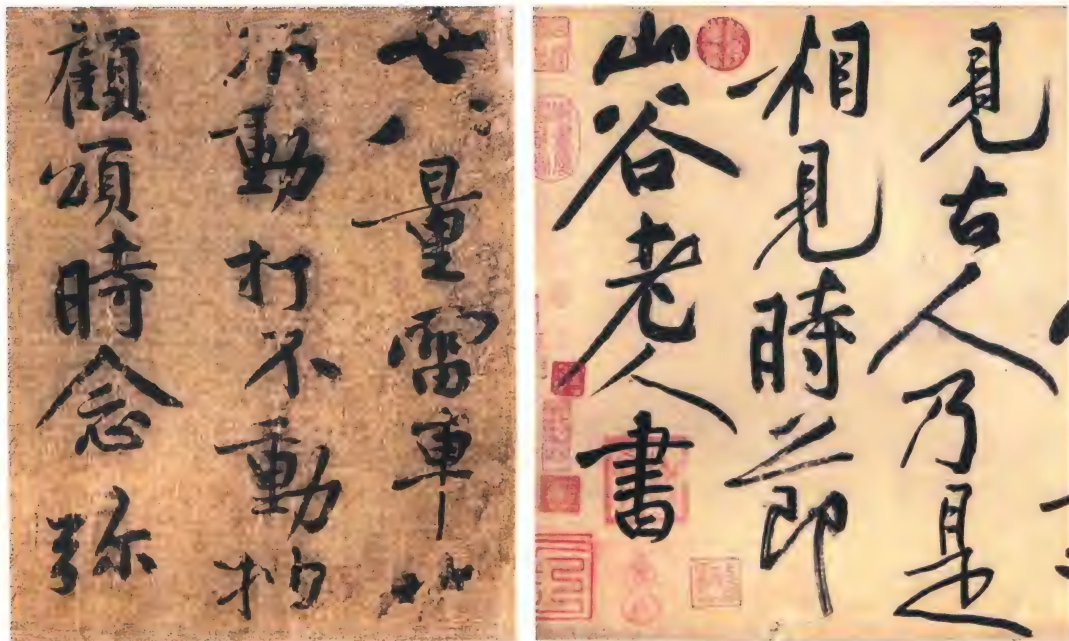 世量雷車
動打不動
顧頌時念弥
見古人乃是
相見時節
山谷老人書